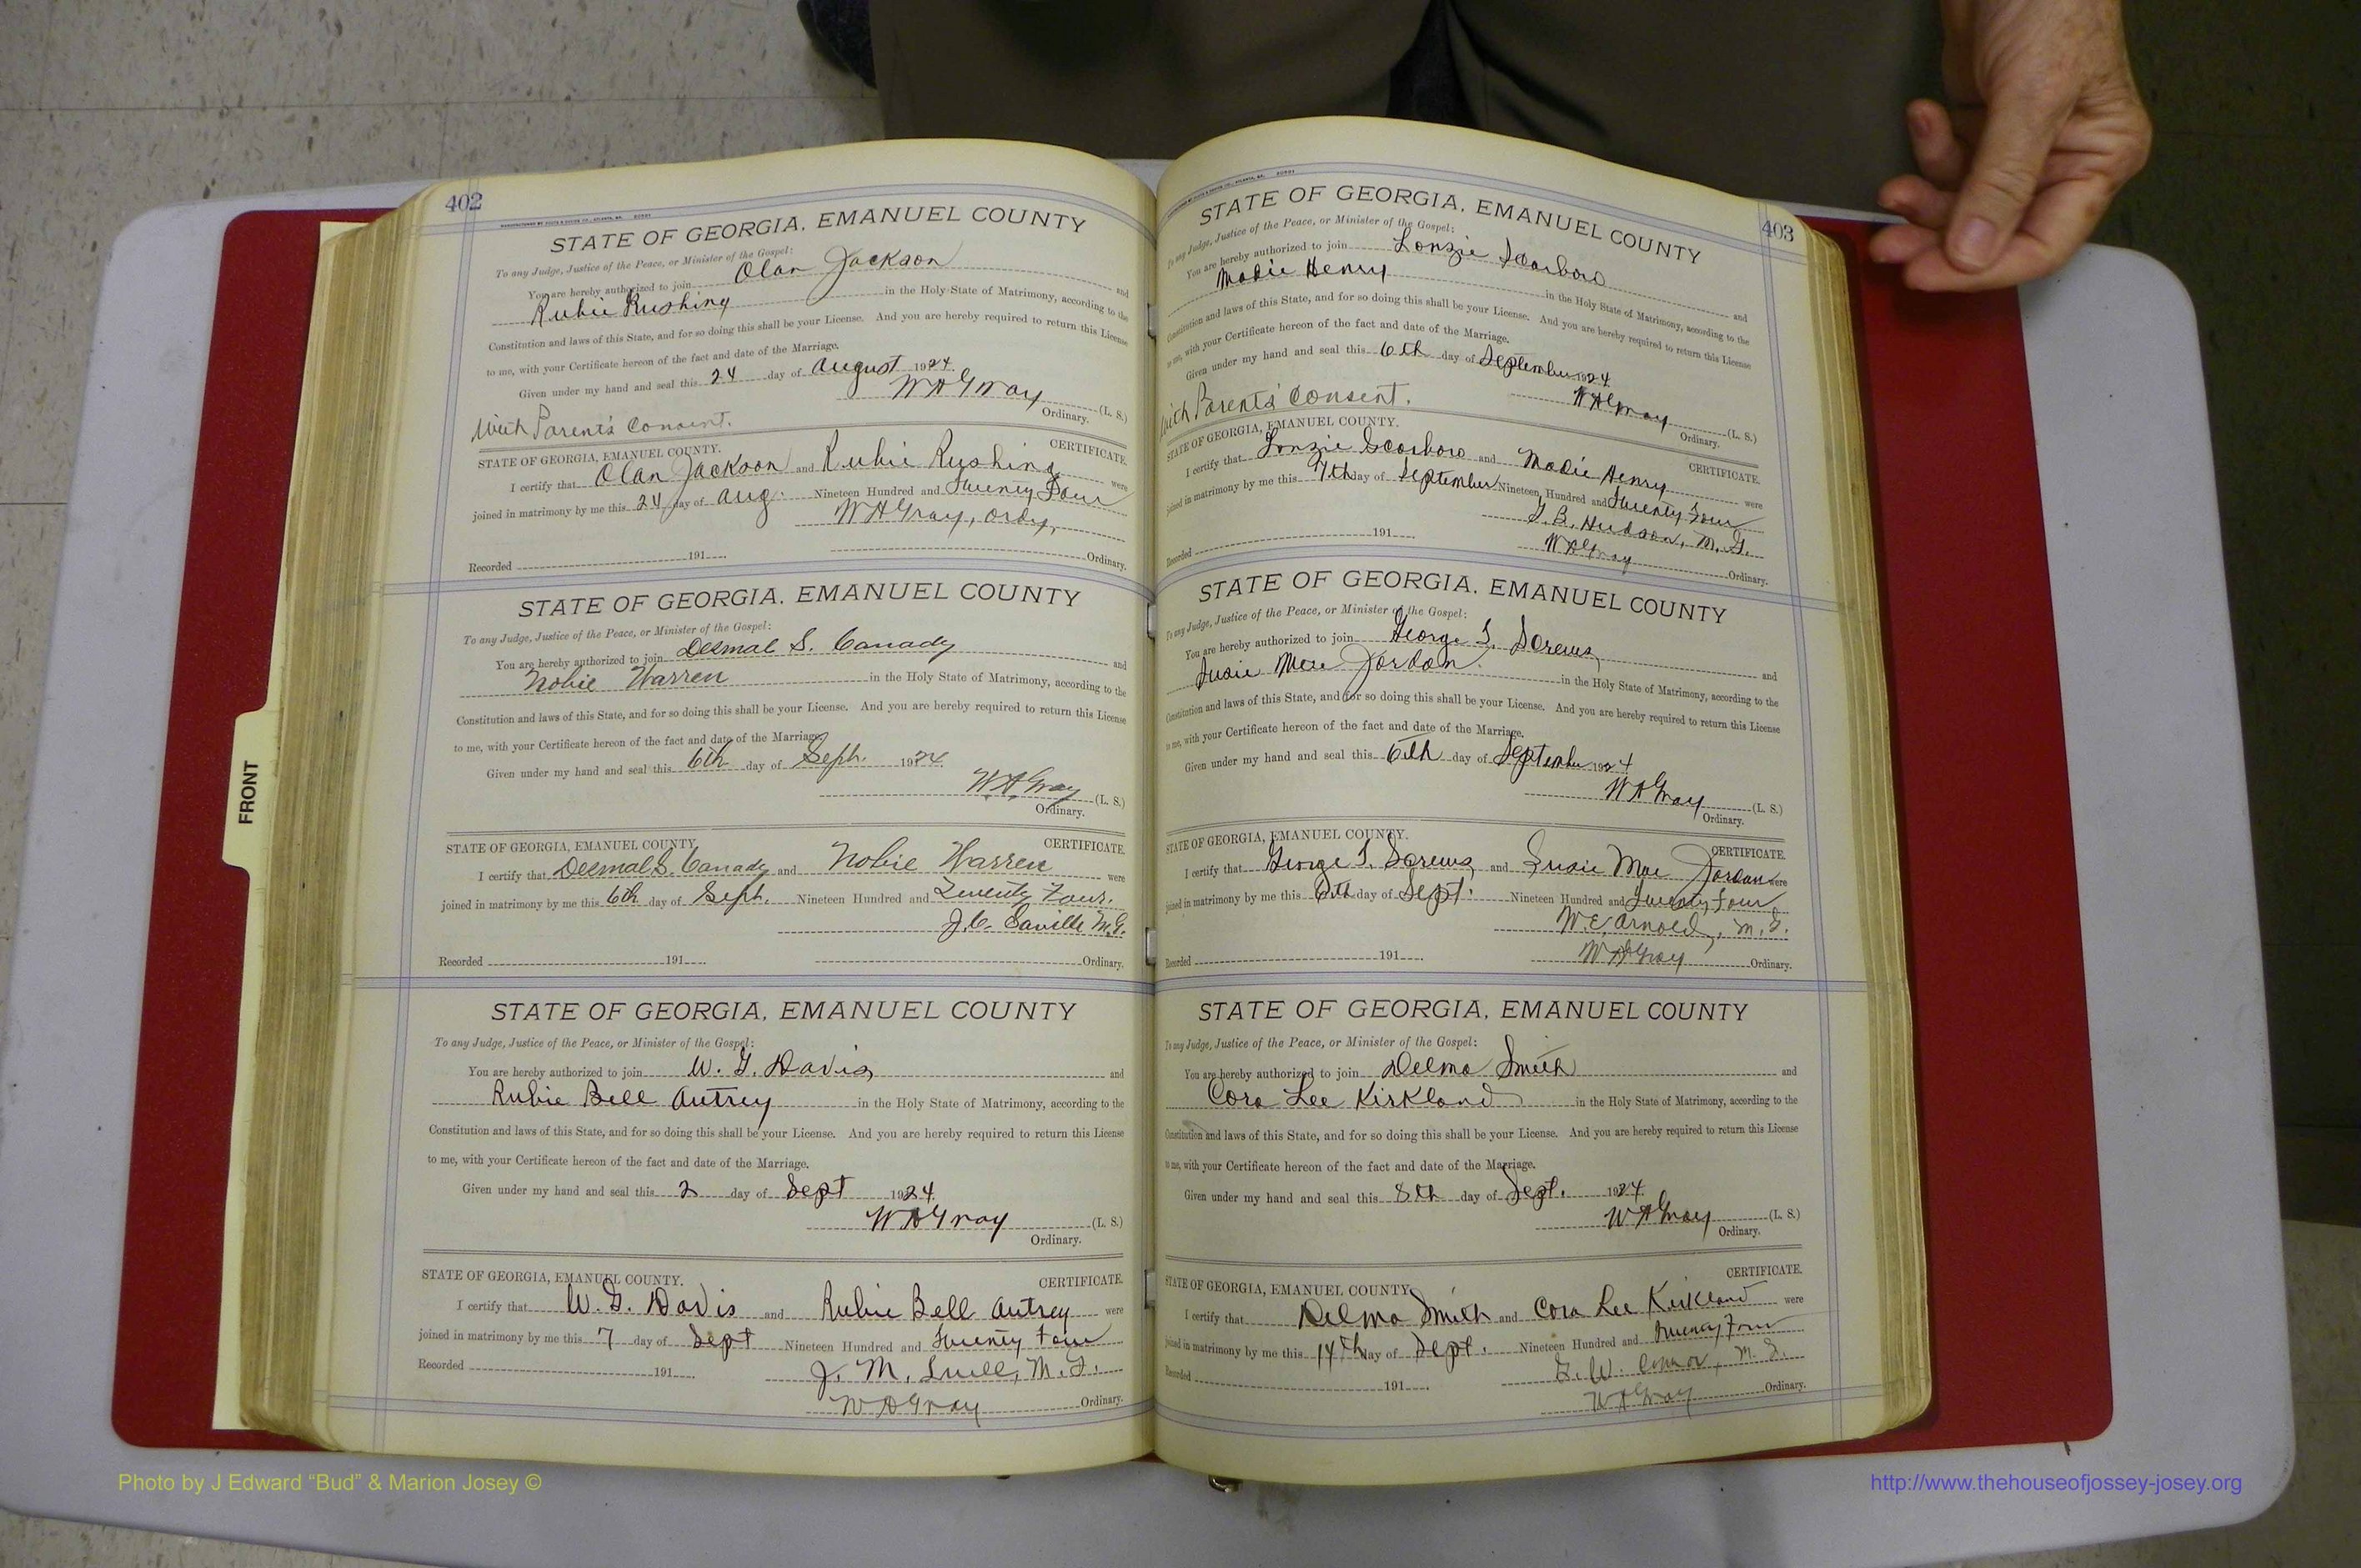 402
STATE OF GEORGIA, EMANUEL COUNTY
To any Judge, Justice of the Peace, or Minister of the Gospel:
You are hereby authorized to join Olan Jackson and
Rubie Rushing in the Holy State of Matrimony, according to the
Constitution and laws of this State, and for so doing this shall be your License. And you are hereby required to return this License
to me, with your Certificate hereon of the fact and date of the Marriage.
Given under my hand and seal this 24 day of August 1924.
W H Gray (L. S.)
Ordinary.
With Parents Consent.
STATE OF GEORGIA, EMANUEL COUNTY. CERTIFICATE.
I certify that Olan Jackson and Rubie Rushing were
joined in matrimony by me this 24 day of Aug. Nineteen Hundred and Twenty Four
W H Gray, Ordy,
Recorded 191 Ordinary.
STATE OF GEORGIA, EMANUEL COUNTY
To any Judge, Justice of the Peace, or Minister of the Gospel:
You are hereby authorized to join S. Canady and
Nobie Warren in the Holy State of Matrimony, according to the
Constitution and laws of this State, and for so doing this shall be your License. And you are hereby required to return this License
to me, with your Certificate hereon of the fact and date of the Marriage.
Given under my hand and seal this 6th day of Sept. 1924.
W. H. Gray (L. S.)
Ordinary.
STATE OF GEORGIA, EMANUEL COUNTY. CERTIFICATE.
I certify that S. Canady and Nobie Warren were
joined in matrimony by me this 6th day of Sept. Nineteen Hundred and Twenty Four.
J. C. M.G.
Recorded 191 Ordinary.
STATE OF GEORGIA, EMANUEL COUNTY
To any Judge, Justice of the Peace, or Minister of the Gospel:
You are hereby authorized to join W. G. Davis and
Rubie Bell Autrey in the Holy State of Matrimony, according to the
Constitution and laws of this State, and for so doing this shall be your License. And you are hereby required to return this License
to me, with your Certificate hereon of the fact and date of the Marriage.
Given under my hand and seal this 2 day of Sept 1924.
W H Gray (L. S.)
Ordinary.
STATE OF GEORGIA, EMANUEL COUNTY. CERTIFICATE.
I certify that W. G. Davis and Rubie Bell Autrey were
joined in matrimony by me this 7 day of Sept Nineteen Hundred and Twenty Four
Recorded 191 J. M. M. G.
W H Gray Ordinary.
403
STATE OF GEORGIA, EMANUEL COUNTY
To any Judge, Justice of the Peace, or Minister of the Gospel:
You are hereby authorized to join Lonzie Scarboro and
Madie Henry in the Holy State of Matrimony, according to the
Constitution and laws of this State, and for so doing this shall be your License. And you are hereby required to return this License
to me, with your Certificate hereon of the fact and date of the Marriage.
Given under my hand and seal this 6th day of September 1924
W H Gray (L. S.)
Ordinary.
With Parents' Consent.
STATE OF GEORGIA, EMANUEL COUNTY. CERTIFICATE.
I certify that Lonzie Scarboro and Madie Henry were
joined in matrimony by me this 7th day of September Nineteen Hundred and Twenty Four
B. Hudson, M. G.
Recorded 191 W H Gray Ordinary.
STATE OF GEORGIA, EMANUEL COUNTY
To any Judge, Justice of the Peace, or Minister of the Gospel:
You are hereby authorized to join George Screws and
Susie Mae Jordan in the Holy State of Matrimony, according to the
Constitution and laws of this State, and for so doing this shall be your License. And you are hereby required to return this License
to me, with your Certificate hereon of the fact and date of the Marriage.
Given under my hand and seal this 6th day of September 1924
W H Gray (L. S.)
Ordinary.
STATE OF GEORGIA, EMANUEL COUNTY. CERTIFICATE.
I certify that George Screws and Susie Mae Jordan were
joined in matrimony by me this day of Sept. Nineteen Hundred and Twenty Four
W. E. Arnold, M. G.
Recorded 191 W H Gray Ordinary.
STATE OF GEORGIA, EMANUEL COUNTY
To any Judge, Justice of the Peace, or Minister of the Gospel:
You are hereby authorized to join Delma Smith and
Cora Lee Kirkland in the Holy State of Matrimony, according to the
Constitution and laws of this State, and for so doing this shall be your License. And you are hereby required to return this License
to me, with your Certificate hereon of the fact and date of the Marriage.
Given under my hand and seal this 8th day of Sept. 1924.
W H Gray (L. S.)
Ordinary.
STATE OF GEORGIA, EMANUEL COUNTY. CERTIFICATE.
I certify that Delma Smith and Cora Lee Kirkland were
joined in matrimony by me this 14th day of Sept. Nineteen Hundred and Twenty Four
Recorded 191 W. M. G.
W H Gray Ordinary.
FRONT
Photo by J Edward “Bud” & Marion Josey ©
http://www.thehouseofjossey-josey.org